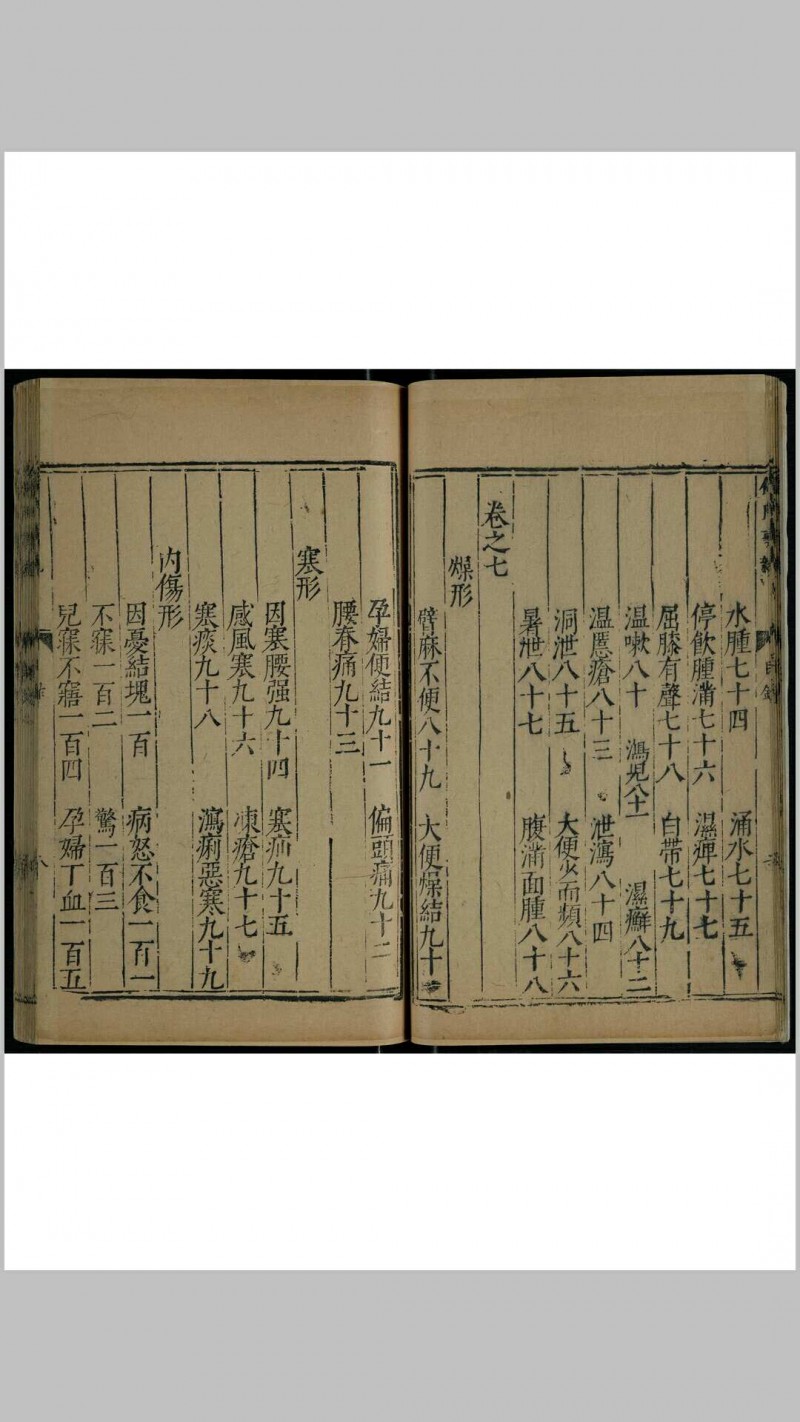 水腫七十四 涌水七十五
停飲腫滿七十六 濕痺七十七
屈膝有聲七十八 白帶七十九
温嗽八十 瀉兒八十一 濕癬八十二
温慝瘡八十三 泄瀉八十四
洞泄八十五 大便少而頻八十六
暑泄八十七 腹滿面腫八十八
卷之七
燥形
臂麻不便八十九 大便燥結九十
孕婦便結九十一 偏頭痛九十二
腰脊痛九十三
寒形
因寒腰强九十四 寒疝九十五
感風寒九十六 凍瘡九十七
寒痰九十八 瀉痢惡寒九十九
内傷形
因憂結塊一百 病怒不食一百一
不寐一百二 驚一百三
兒寐不寤一百四 孕婦下血一百五